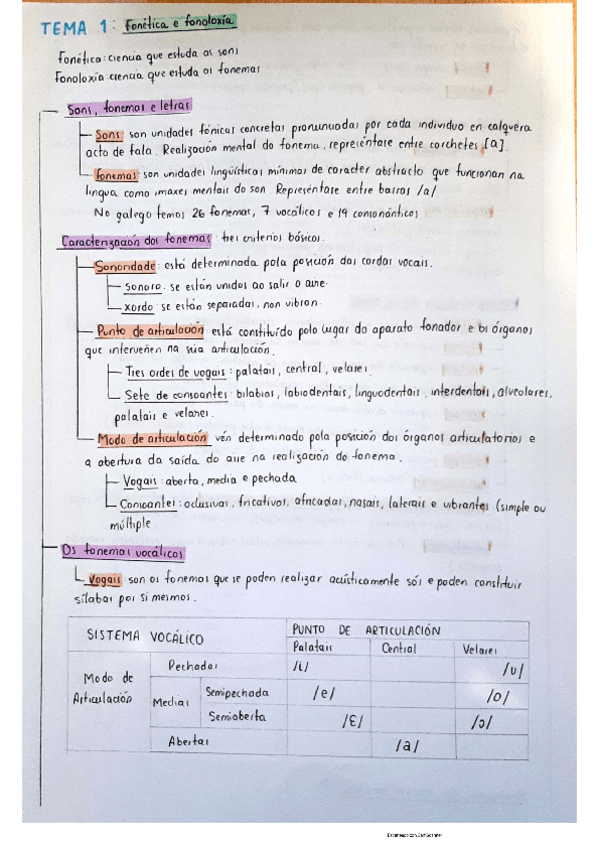 TEMA 1: Fonética e fonoloxía
Fonética: ciencia que estuda os sons
Fonoloxía ciencia que estuda os fonemas
Sons, fonemas e letras
Sons son unidades fónicas concretas pronunciadas por cada individuo en calquera
acto de fala. Realización mental do fonema, represéntase entre corchetes [a].
Fonemas: son unidades lingüísticas mínimas de caracter abstracto que funcionan na
lingua como imaxes mentais do son Represéntase entre barras /a/
No galego temos 26 fonemas, 7 vocálicos e 19 consonánticos.
Caracterización dos fonemas: tres criterios básicos.
Sonoridade: está determinada pola posición das cordas vocais.
Sonoro: se están unidas ao salir o aire.
Xordo: se están separadas, non vibran.
Punto de articulación está constituído polo lugar do aparato fonador e os órganos
que interveñen na súa articulación.
Tres ordes de vogais: palatais, central, velares.
Sete de consoantes: bilabias, labiodentais, linguodentais, interdentais, alveolares,
palatais e velares.
Modo de articulación vén determinado pola posición dos órganos articulatorios e
a abertura da saída do aire na realización do fonema.
Vogais: aberta, media e pechada
Consoantes: oclusivas, fricativas, africadas, nasais, laterais e vibrantes (simple ou
múltiple.
Os fonemas vocálicos
Vogais: son os fonemas que se poden realizar acusticamente sós e poden constituír
sílabas por si mesmos.
SISTEMA VOCÁLICO PUNTO DE ARTICULACIÓN
Palatais Central Velares
Modo de Articulación
Pechadas /i/ /u/
Medias Semipechada /e/ /o/
Semiaberta /ɛ/ /ɔ/
Abertas /a/
Escaneado con CamScanner